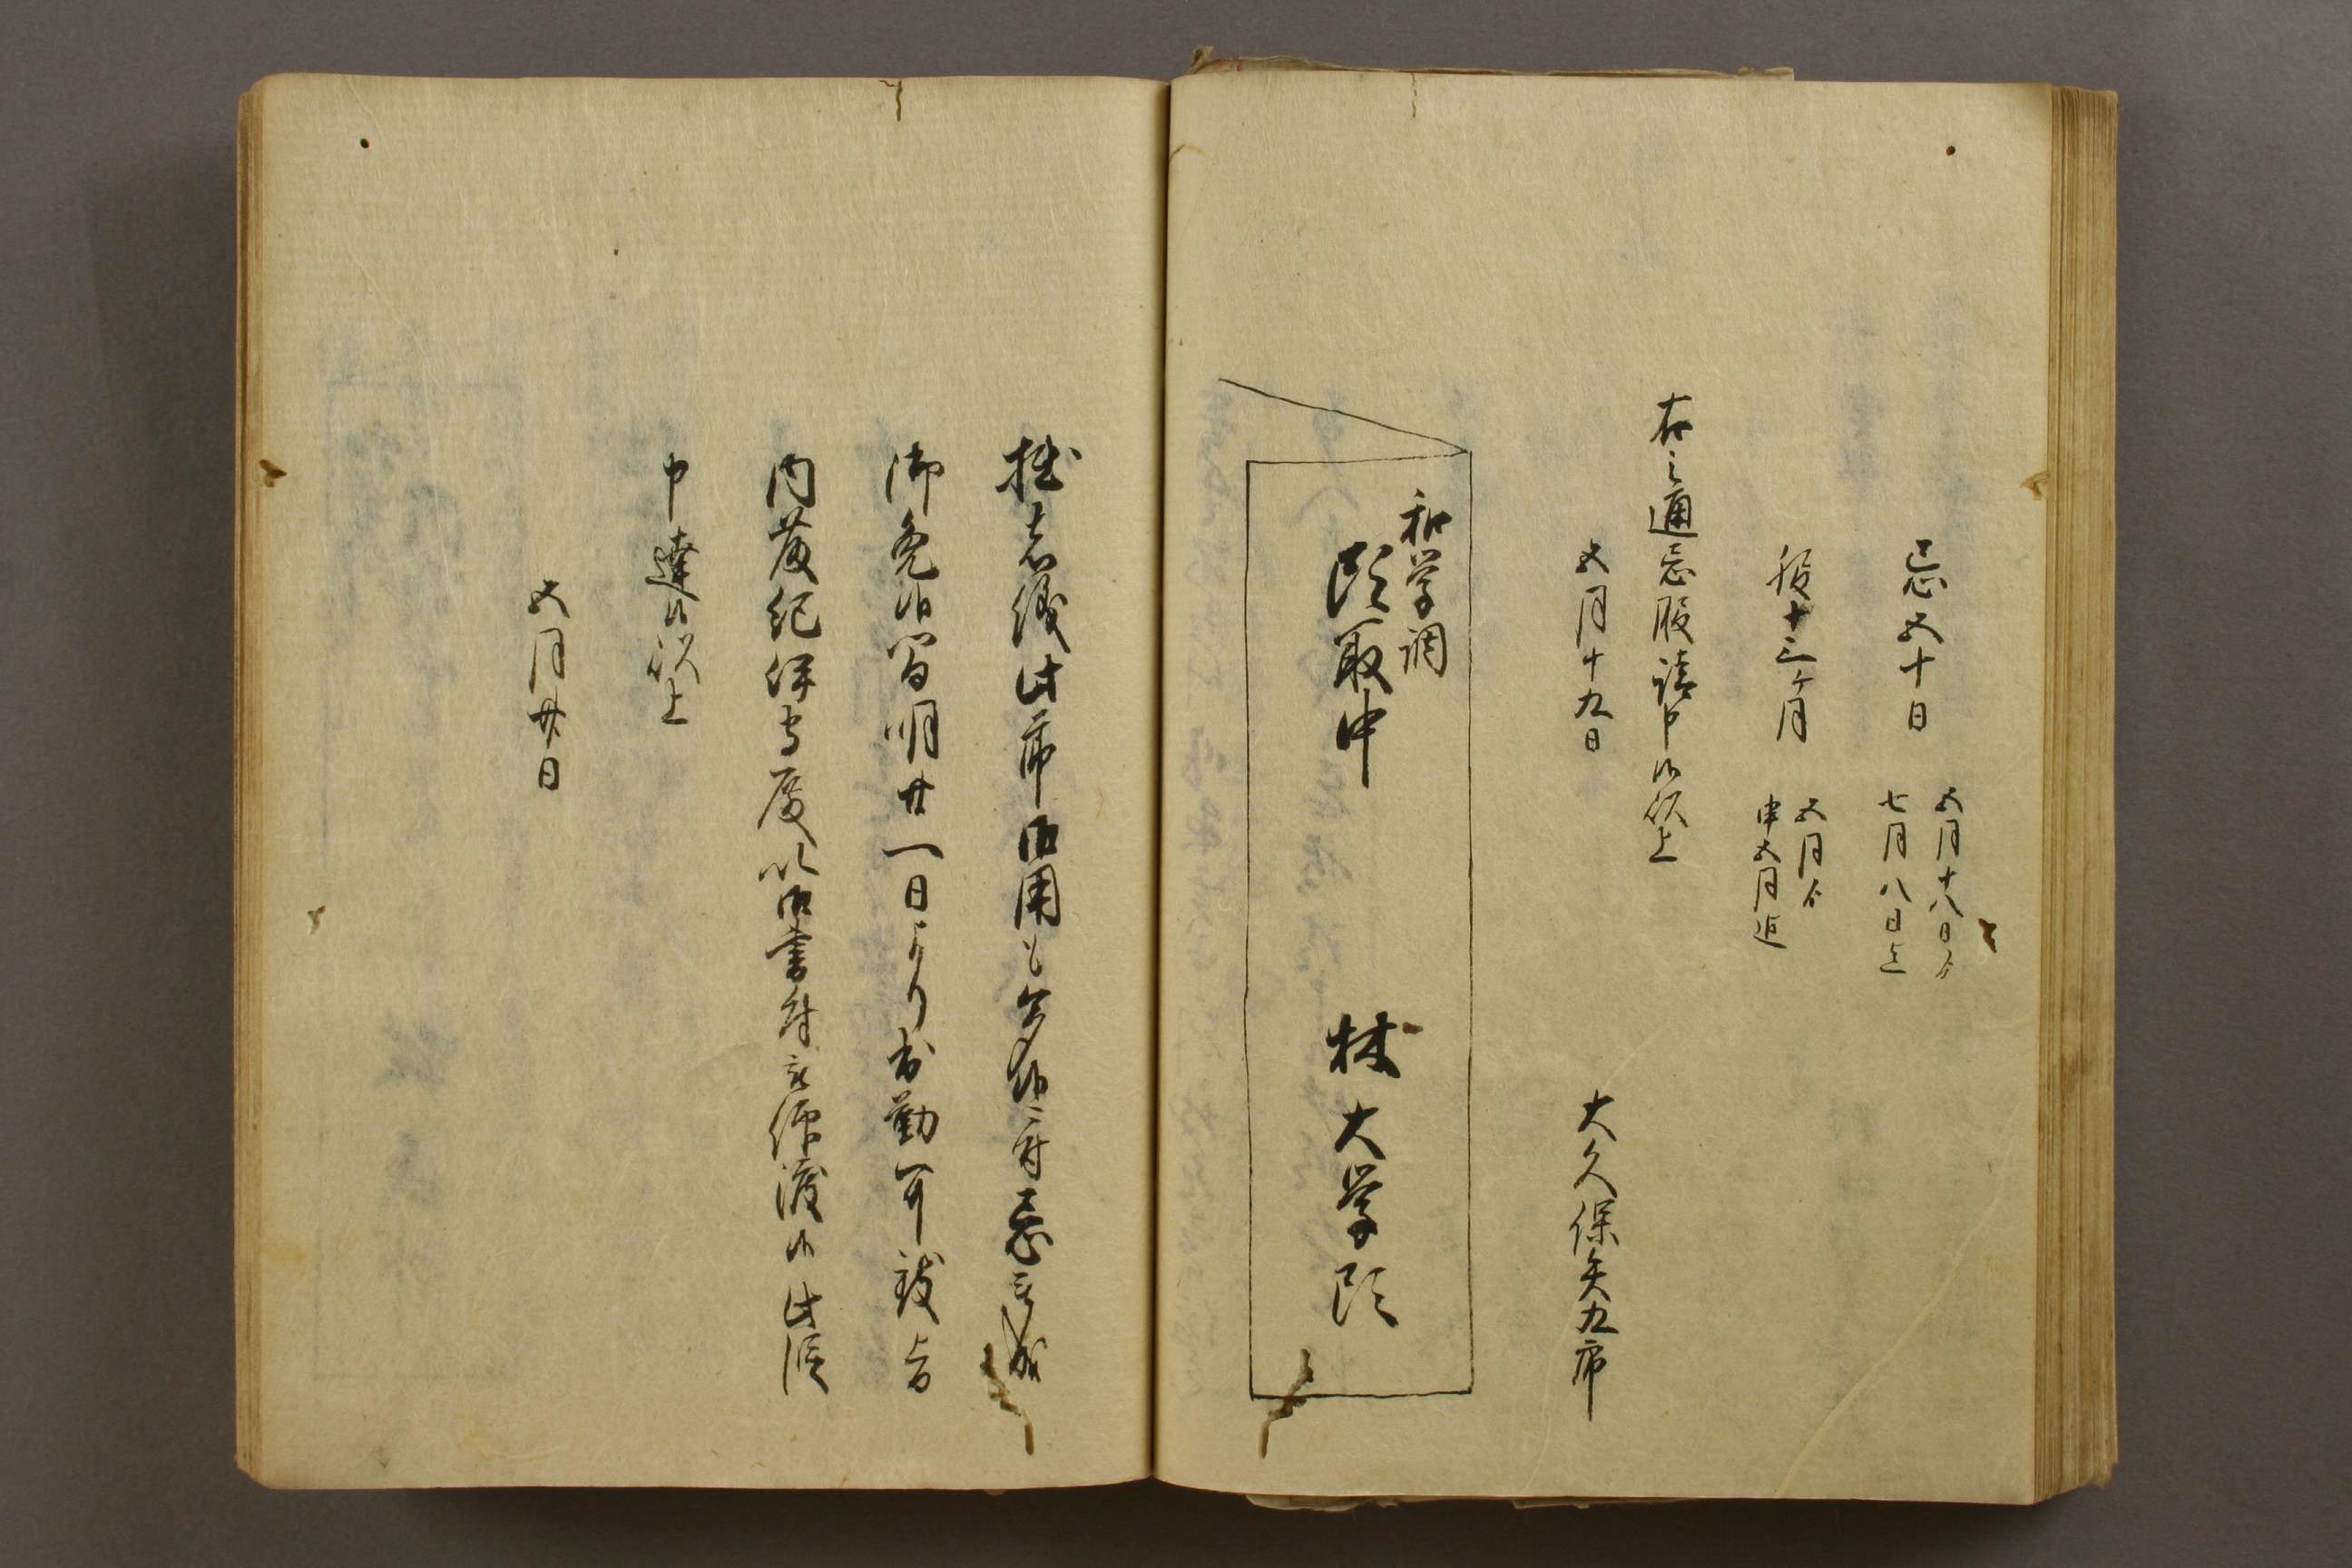 忌五十日
五月十八日ゟ
七月八日迄
服十三ヶ月
五月ゟ
申五月迄
右之通忌服請申候以上
五月十九日
大久保矢九郎
和学調
頭取中
林大学頭
拙者儀此節御用も多候ニ付忌
御免候間明廿一日より出勤可致旨
内藤紀伊守殿以御書付被仰渡候此段
申達候以上
五月廿日